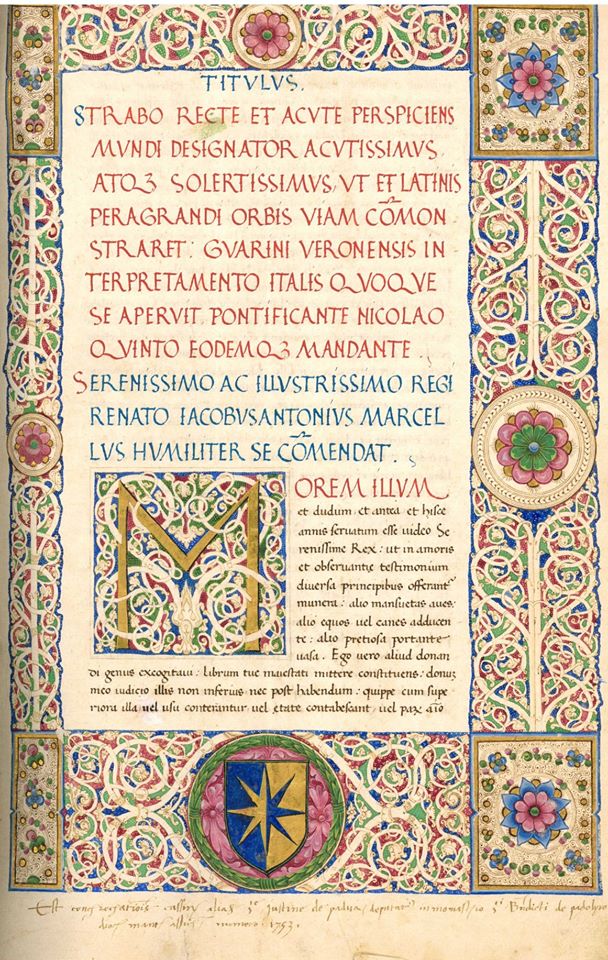 TITVLVS.
STRABO RECTE ET ACVTE PERSPICIENS
MVNDI DESIGNATOR ACVTISSIMVS,
ATQꝫ SOLERTISSIMVS, VT ET LATINIS
PERAGRANDI ORBIS VIAM CŌMON
STRARET: GVARINI VERONENSIS IN
TERPRETAMENTO ITALIS QVOQVE
SE APERVIT. PONTIFICANTE NICOLAO
QVINTO EODEMQꝫ MANDANTE.
SERENISSIMO AC ILLVSTRISSIMO REGI
RENATO IACOBVSANTONIVS MARCEL
LVS HVMILITER SE CŌMENDAT.
MOREM ILLVM
et dudum et antea et hisce
annis seruatum esse video Se
renissime Rex: ut in amoris
et obseruantie testimonium
diuersa principibus offerant᷒
munera: alio mansuetas aues:
alio equos uel canes adducen
te: alio pretiosa portante
uasa. Ego uero aliud donan
di genus excogitaui: librum tue maiestati mittere constituens: donuꝫ
meo iudicio illis non inferius nec post habendum: quippe cum supe
riora illa uel usu conterantur uel etate contabescant uel pax
Est alias Justine de padua, in monasterio de padolyro
numero 1753.